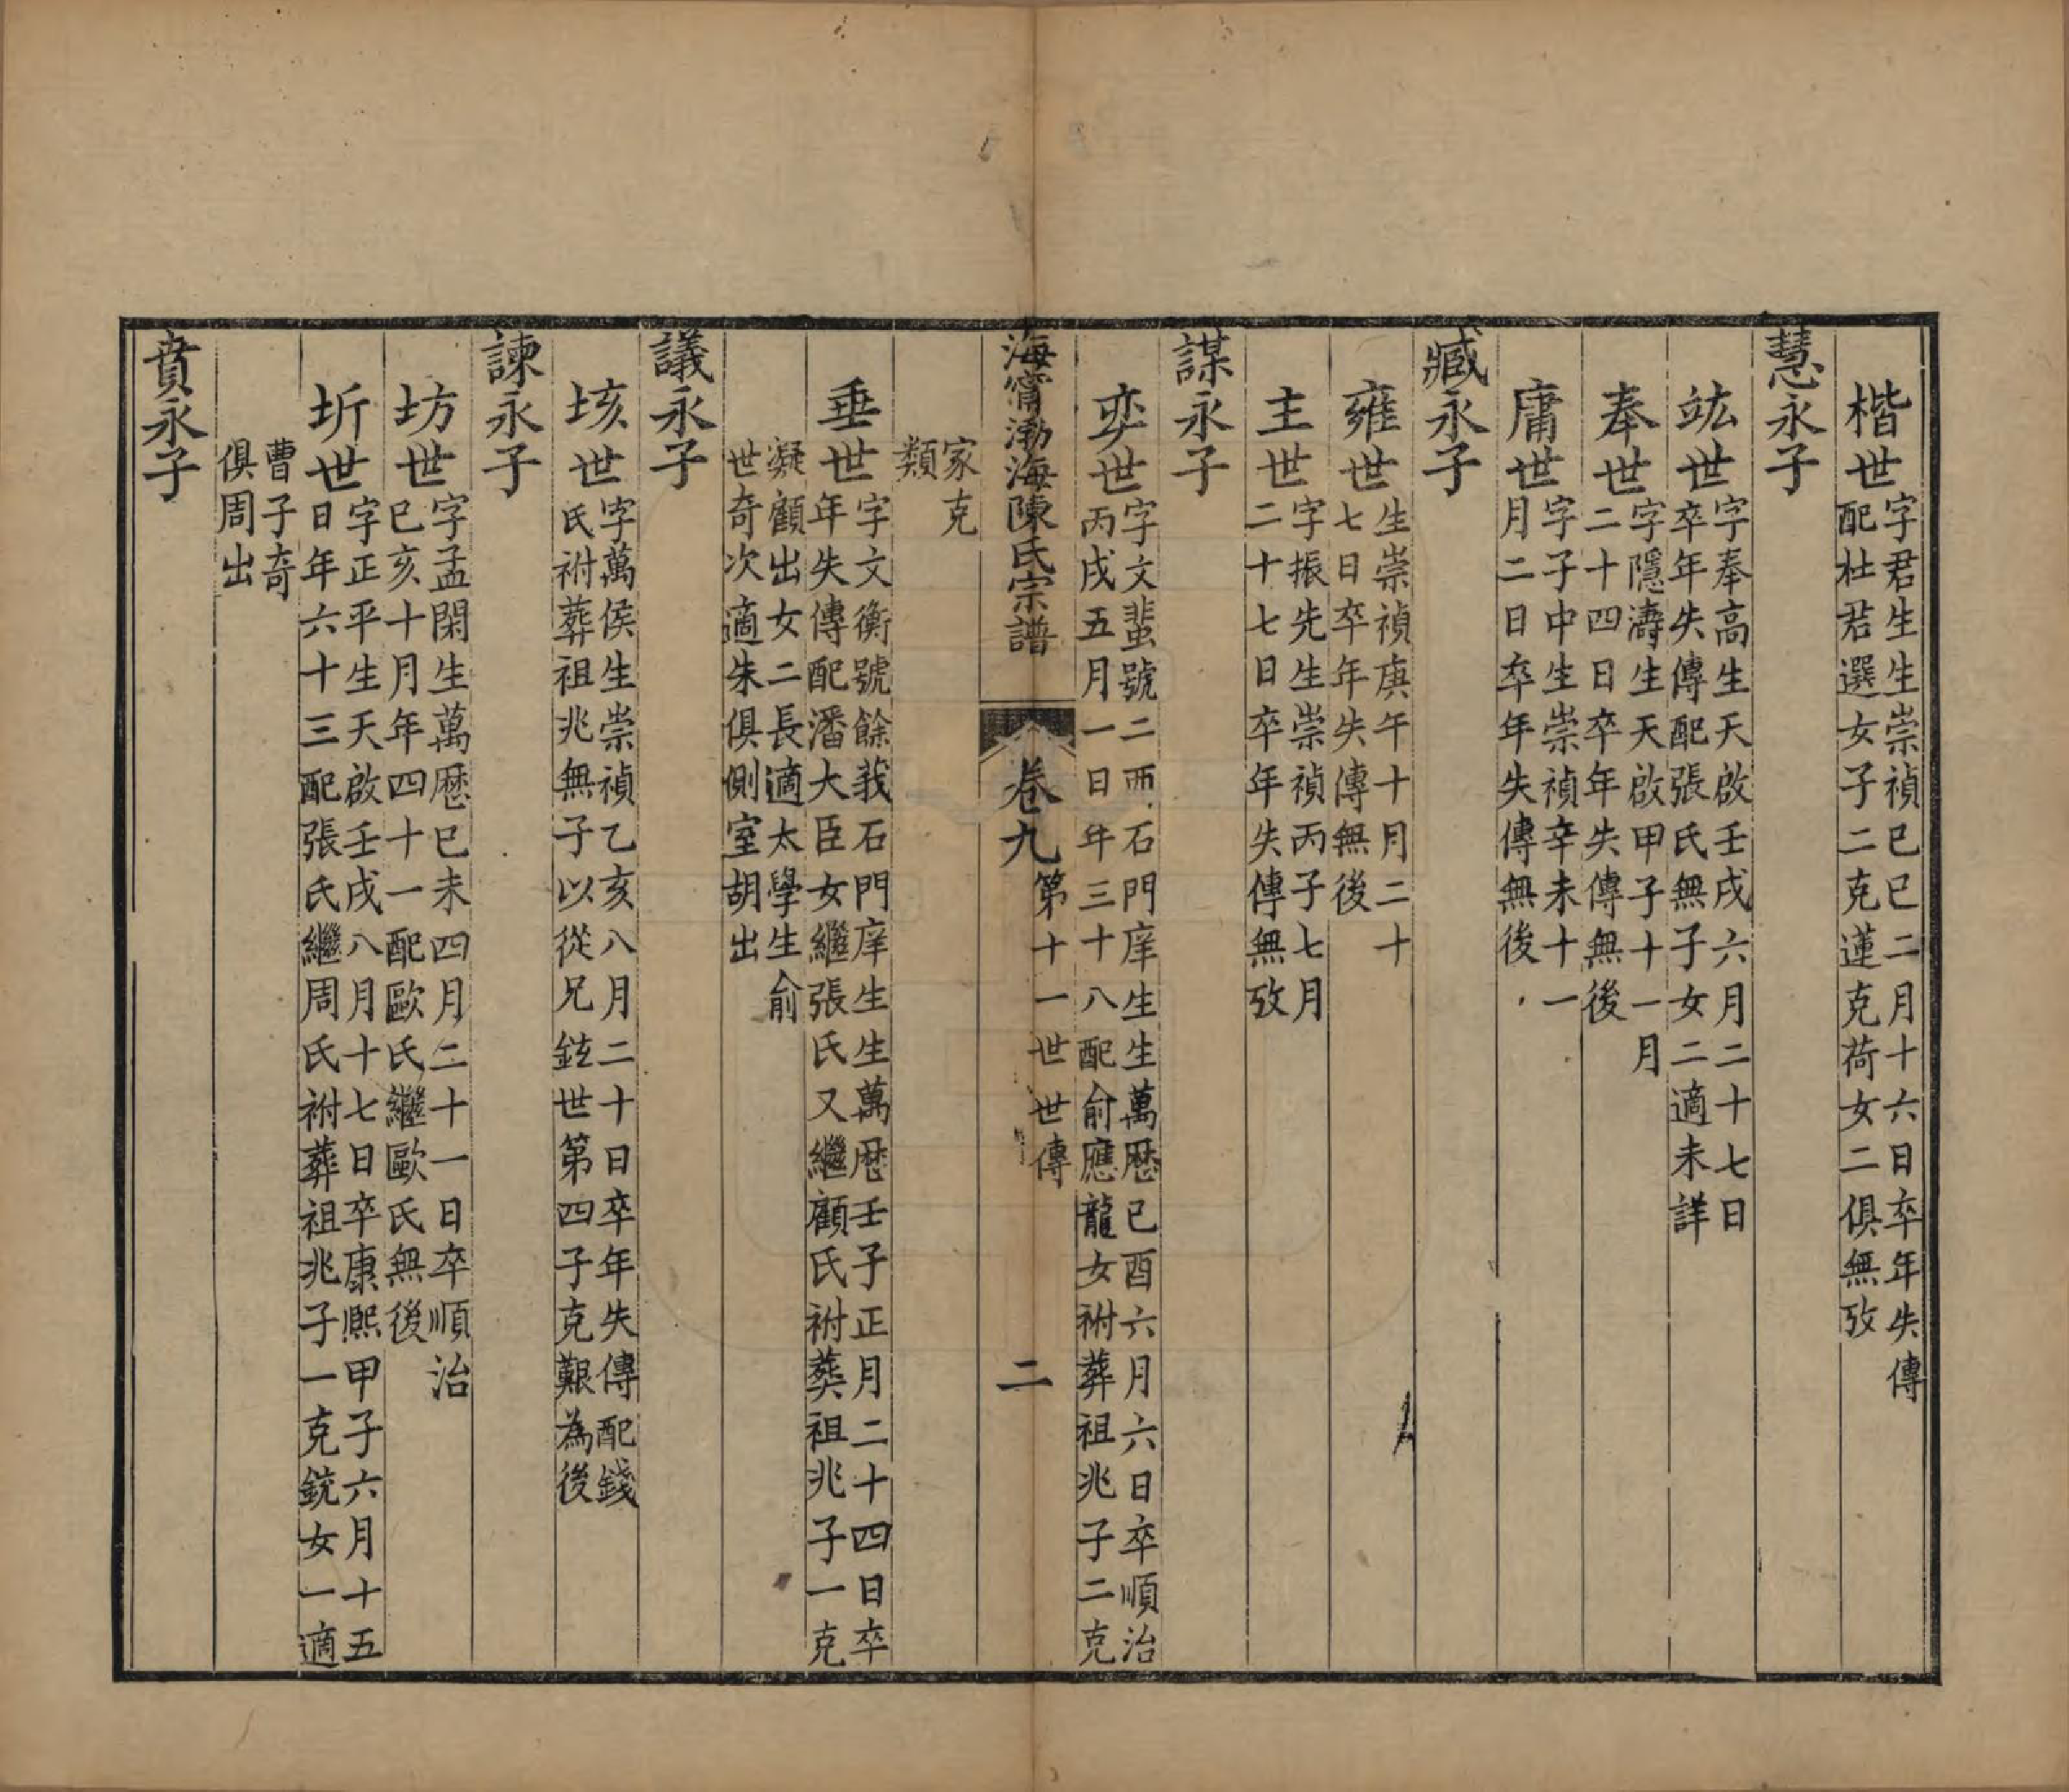 楷世
字君生生崇禎己巳二月十六日卒年失傳
配杜若選女子二克蓮克荷女二俱無攷
慧永子
竑世
字奉高生天啟壬戌六月二十七日
卒年失傳配張氏無子女二適未詳
奉世
字隱濤生天啟甲子十一月
二十四日卒年失傳無後
庸世
字子中生崇禎辛未十一
月二日卒年失傳無後
臧永子
雍世
生崇禎庚午十月二十
七日卒年失傳無後
主世
字振先生崇禎丙子七月
二十七日卒年失傳無攷
謀永子
奕世
字文蜚號二西石門庠生生萬曆己酉六月六日卒順治
丙戌五月一日年三十八配俞應龍女祔葬祖兆子二克
海甯渤海陳氏宗譜
卷九
第十一世世傳
二
家克
類
垂世
字文衡號餘莪石門庠生生萬曆壬子正月二十四日卒
年失傳配潘大臣女繼張氏又繼顧氏祔葬祖兆子一克
凝顧出女二長適太學生俞
世奇次適朱俱側室胡出
議永子
垓世
字萬侯生崇禎乙亥八月二十日卒年失傳配錢
氏祔葬祖兆無子以從兄鉉世第四子克艱為後
諫永子
坊世
字孟閑生萬曆己未四月二十一日卒順治
己亥十月年四十一配歐氏繼歐氏無後
圻世
字正平生天啟壬戌八月十七日卒康熙甲子六月十五
日年六十三配張氏繼周氏祔葬祖兆子一克銃女一適
曹子奇
俱周出
賁永子